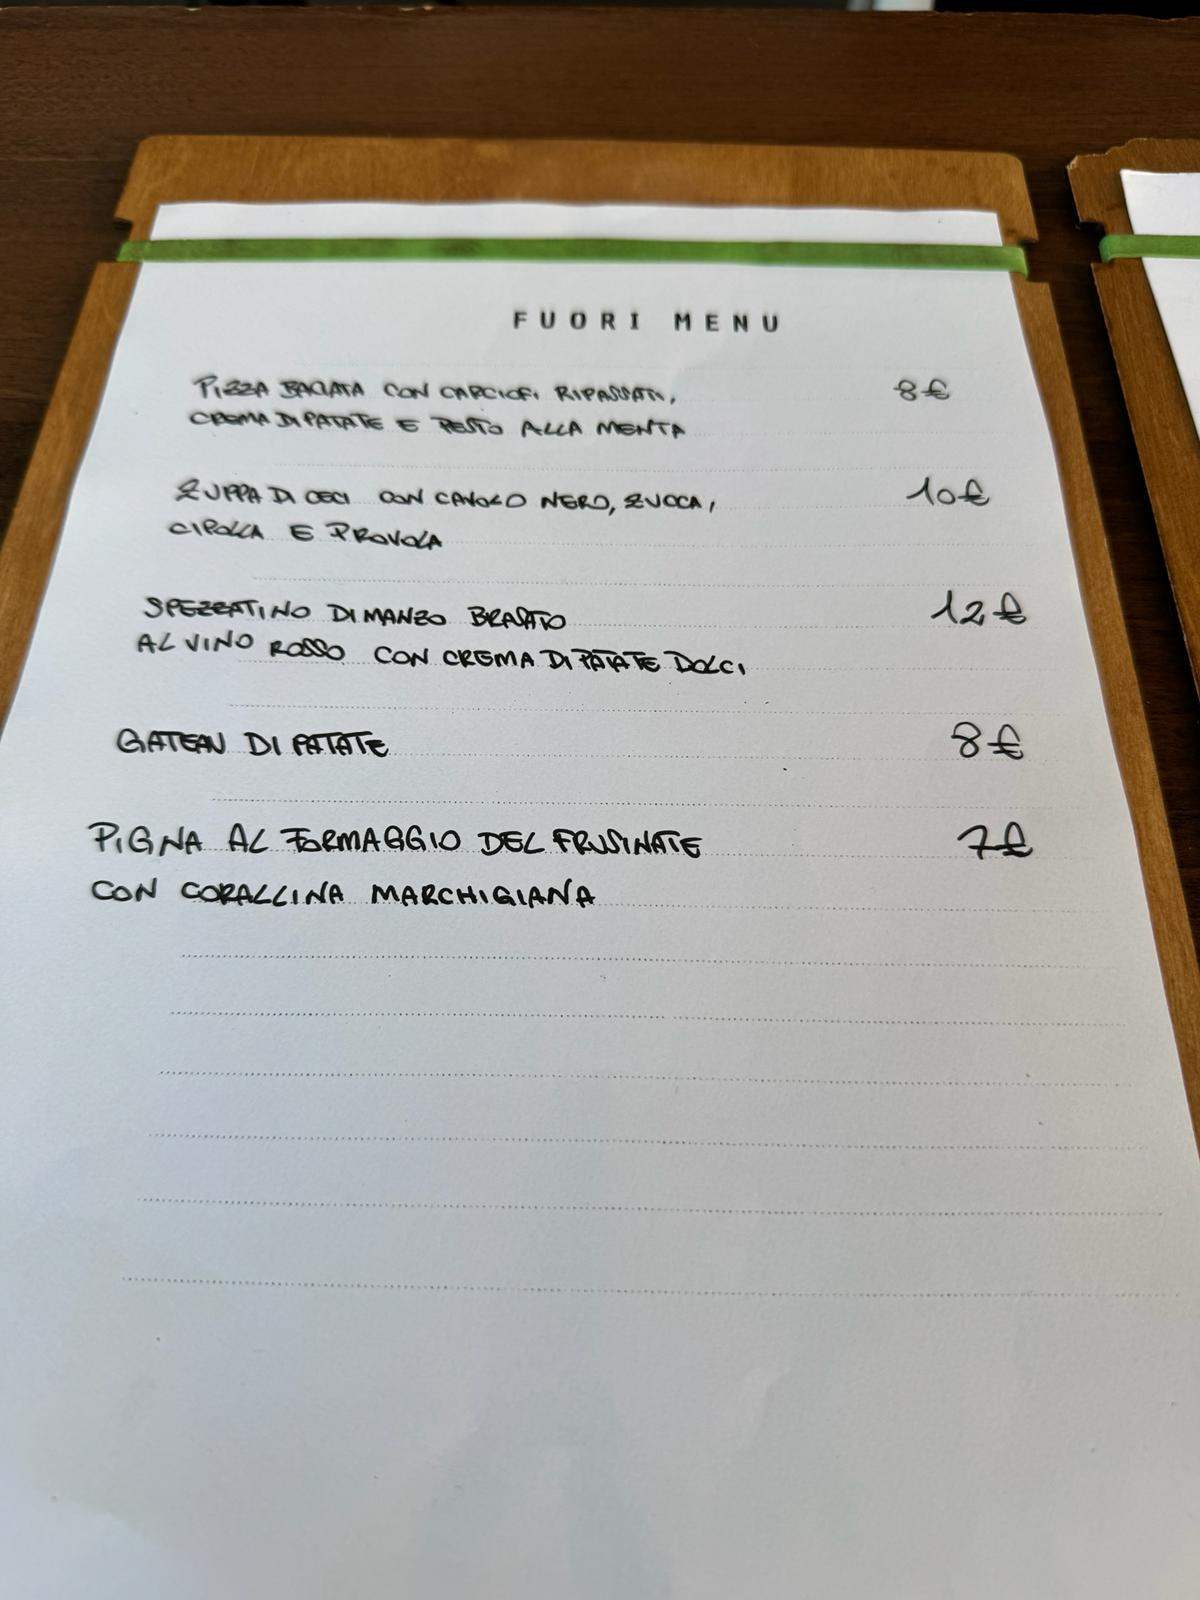 FUORI MENU
PIZZA BACIATA CON CARCIOFI RIPASSATI, 8€
CREMA DI PATATE E PESTO ALLA MENTA
ZUPPA DI CECI CON CAVOLO NERO, ZUCCA, 10€
CIPOLLA E PROVOLA
SPEZZATINO DI MANZO BRASATO 12€
AL VINO ROSSO CON CREMA DI PATATE DOLCI
GATEAU DI PATATE 8€
PIGNA AL FORMAGGIO DEL FRUSINATE 7€
CON CORALLINA MARCHIGIANA